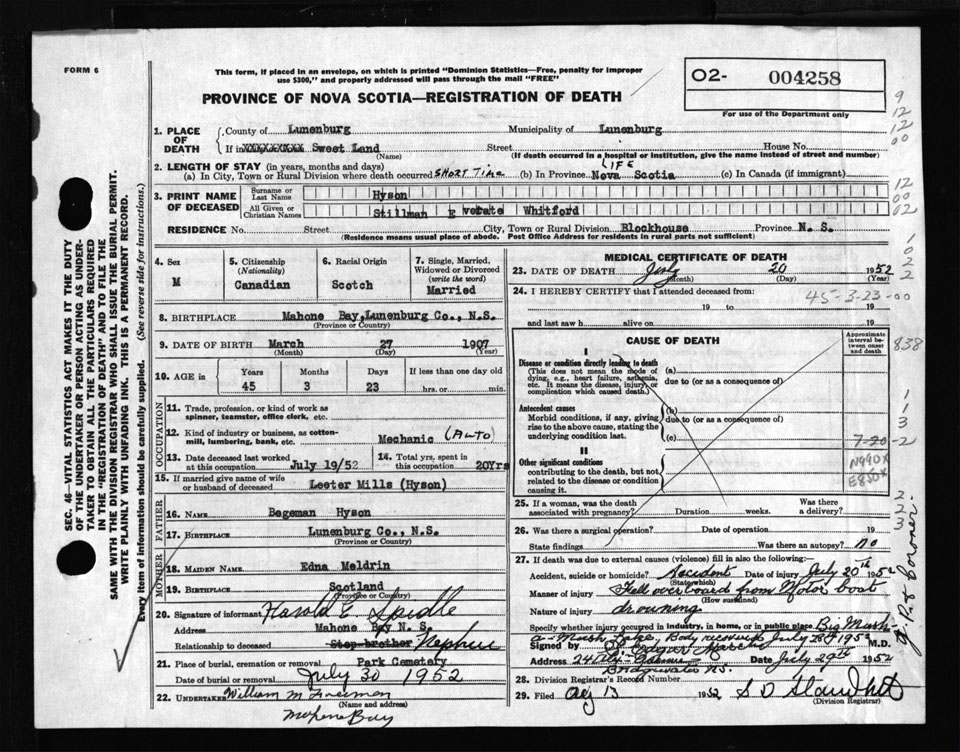 FORM 6
This form, if placed in an envelope, on which is printed "Dominion Statistics—Free, penalty for improper
use $300," and properly addressed will pass through the mail "FREE"
PROVINCE OF NOVA SCOTIA—REGISTRATION OF DEATH
O2- 004258
For use of the Department only
SEC. 46—VITAL STATISTICS ACT MAKES IT THE DUTY
OF THE UNDERTAKER OR PERSON ACTING AS UNDER-
TAKER TO OBTAIN ALL THE PARTICULARS REQUIRED
IN THE "REGISTRATION OF DEATH" AND TO FILE THE
SAME WITH THE DIVISION REGISTRAR WHO SHALL ISSUE THE BURIAL PERMIT.
WRITE PLAINLY WITH UNFADING INK. THIS IS A PERMANENT RECORD.
Every item of information should be carefully supplied. (See reverse side for instructions.)
1. PLACE OF DEATH
County of Lunenburg Municipality of Lunenburg
If in XXXXXXXXX Sweet Land Street House No.
(Name) (If death occurred in a hospital or institution, give the name instead of street and number)
2. LENGTH OF STAY (in years, months and days) LIFE
(a) In City, Town or Rural Division where death occurred SHORT TIME (b) In Province Nova Scotia (c) In Canada (if immigrant)
3. PRINT NAME OF DECEASED
Surname or Last Name Hyson
All Given or Christian Names Stillman E verate Whitford
RESIDENCE No. Street City, Town or Rural Division Blockhouse Province N. S.
(Residence means usual place of abode. Post Office Address for residents in rural parts not sufficient)
4. Sex M
5. Citizenship (Nationality) Canadian
6. Racial Origin Scotch
7. Single, Married, Widowed or Divorced (write the word) Married
8. BIRTHPLACE Mahone Bay, Lunenburg Co., N.S.
(Province or Country)
9. DATE OF BIRTH March 27 1907
(Month) (Day) (Year)
10. AGE in Years 45 Months 3 Days 23 If less than one day old hrs. or min.
OCCUPATION
11. Trade, profession, or kind of work as spinner, teamster, office clerk, etc.
12. Kind of industry or business, as cotton-mill, lumbering, bank, etc. Mechanic (Auto)
13. Date deceased last worked at this occupation July 19/52
14. Total yrs. spent in this occupation 20Yrs
15. If married give name of wife or husband of deceased Leeter Mills (Hyson)
FATHER
16. NAME Begeman Hyson
17. BIRTHPLACE Lunenburg Co., N.S.
(Province or Country)
MOTHER
18. MAIDEN NAME Edna Meldrin
19. BIRTHPLACE Scotland
(Province or Country)
20. Signature of informant Harold E. Spidle
Address Mahone Bay N. S.
Relationship to deceased Step-brother Nephew
21. Place of burial, cremation or removal Park Cemetery
Date of burial July 30 1952
22. UNDERTAKER William M Freeman
(Name and address)
Mahone Bay
MEDICAL CERTIFICATE OF DEATH
23. DATE OF DEATH July 20 1952
(Month) (Day)
24. I HEREBY CERTIFY that I attended deceased from:
45-3-23-00
19 to 19
and last saw h alive on 19
CAUSE OF DEATH
Approximate interval between onset and death
I
Disease or condition directly leading to death
(This does not mean the mode of dying, e.g., heart failure, asthenia, etc. It means the disease, injury, or complication which caused death.)
(a)
due to (or as a consequence of)
Antecedent causes
Morbid conditions, if any, giving rise to the above cause, stating the underlying condition last.
(b)
due to (or as a consequence of)
(c)
7-20-2
II
Other significant conditions
contributing to the death, but not related to the disease or condition causing it.
N990X
E850X
25. If a woman, was the death associated with pregnancy? Duration weeks. Was there a delivery?
26. Was there a surgical operation? Date of operation 19
State findings Was there an autopsy? no
27. If death was due to external causes (violence) fill in also the following:
Accident, suicide or homicide? Accident Date of injury July 20th 1952
(State which)
Manner of injury Fell overboard from Motor boat
(How sustained)
Nature of injury drowning
Specify whether injury occurred in industry, in home, or in public place Big Mush-
a-Mush Lake, Body recovered July 28th 1952
Signed by Edgar M.D.
Address Bridgewater N.S. Date July 29th 1952
28. Division Registrar's Record Number
29. Filed Aug 13 1952
(Division Registrar)
J.P. & Coroner
9
12
12
00
12
00
02
1
0
2
2
838
1
1
3
2
2
3